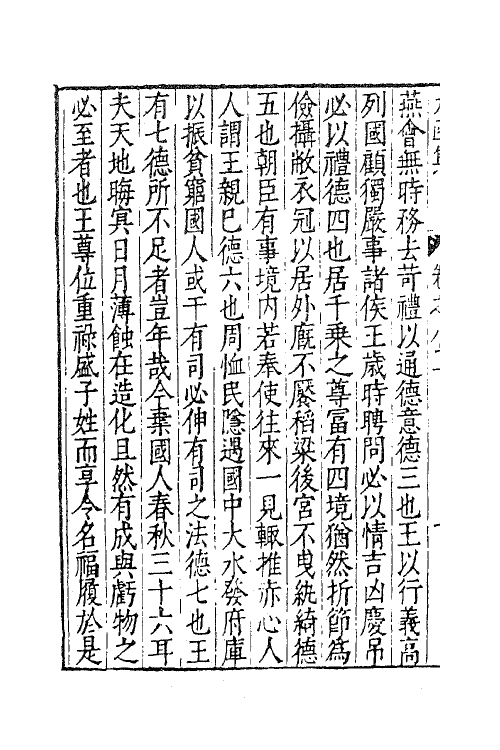 燕會無時務去苛禮以通德意德三也王以行義高
列國顧獨嚴事諸侯王歲時聘問必以情吉凶慶吊
必以禮德四也居千乗之尊冨有四境猶然折節為
儉攝敝衣冠以居外廐不饜稻粱後宮不曳紈綺德
五也朝臣有事境内若奉使往來一見輙推赤心人
人謂王親已德六也周恤民隱遇國中大水發府庫
以振貧窮國人或干有司必伸有司之法德七也王
有七德所不足者豈年哉今棄國人春秋三十六耳
夫天地晦冥日月薄蝕在造化且然有成與虧物之
必至者也王尊位重祿盛子姓而享令名福履於是